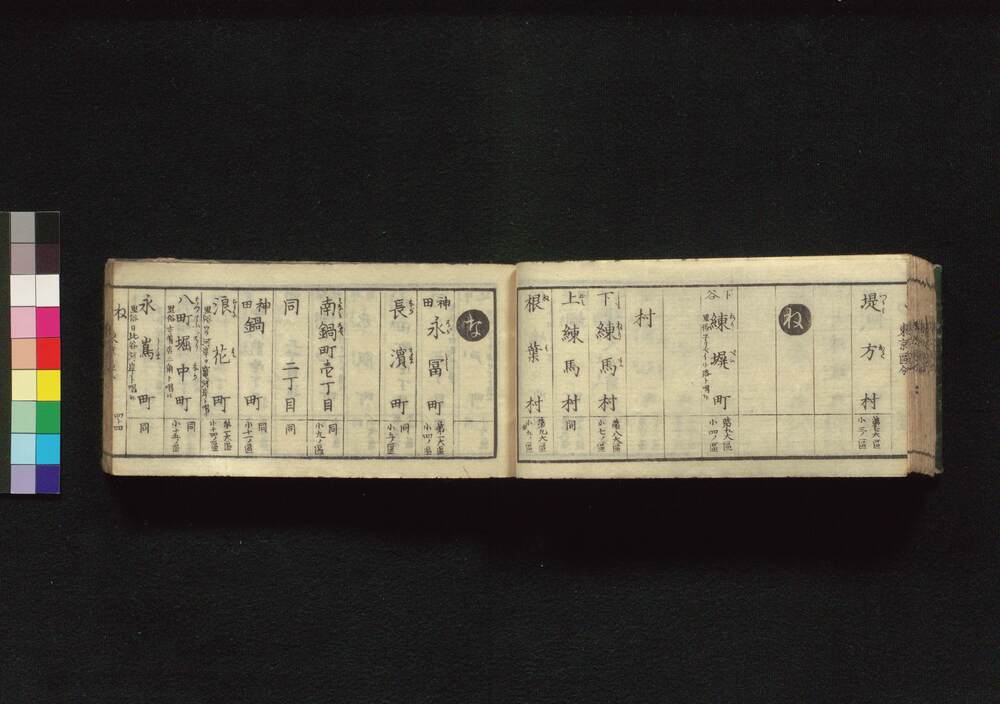 東京區分
堤方村
第七大區
小三ノ區
ね
下谷
練塀町
第五大區
小四ノ區
村
下練馬村
第八大區
小七ノ區
上練馬村
同
根葉村
第九大區
な
神田
永冨町
第一大區
小四ノ區
長濱町
同
小五ノ區
南鍋町壱丁目
同
小九ノ區
同二丁目
同
神田
鍋町
同
小十一ノ區
浪花町
第一大區
小十四ノ區
八町堀中町
同
小十五ノ區
永嶌町
同
里俗日比谷河岸ト唱フ
ね
四ノ四